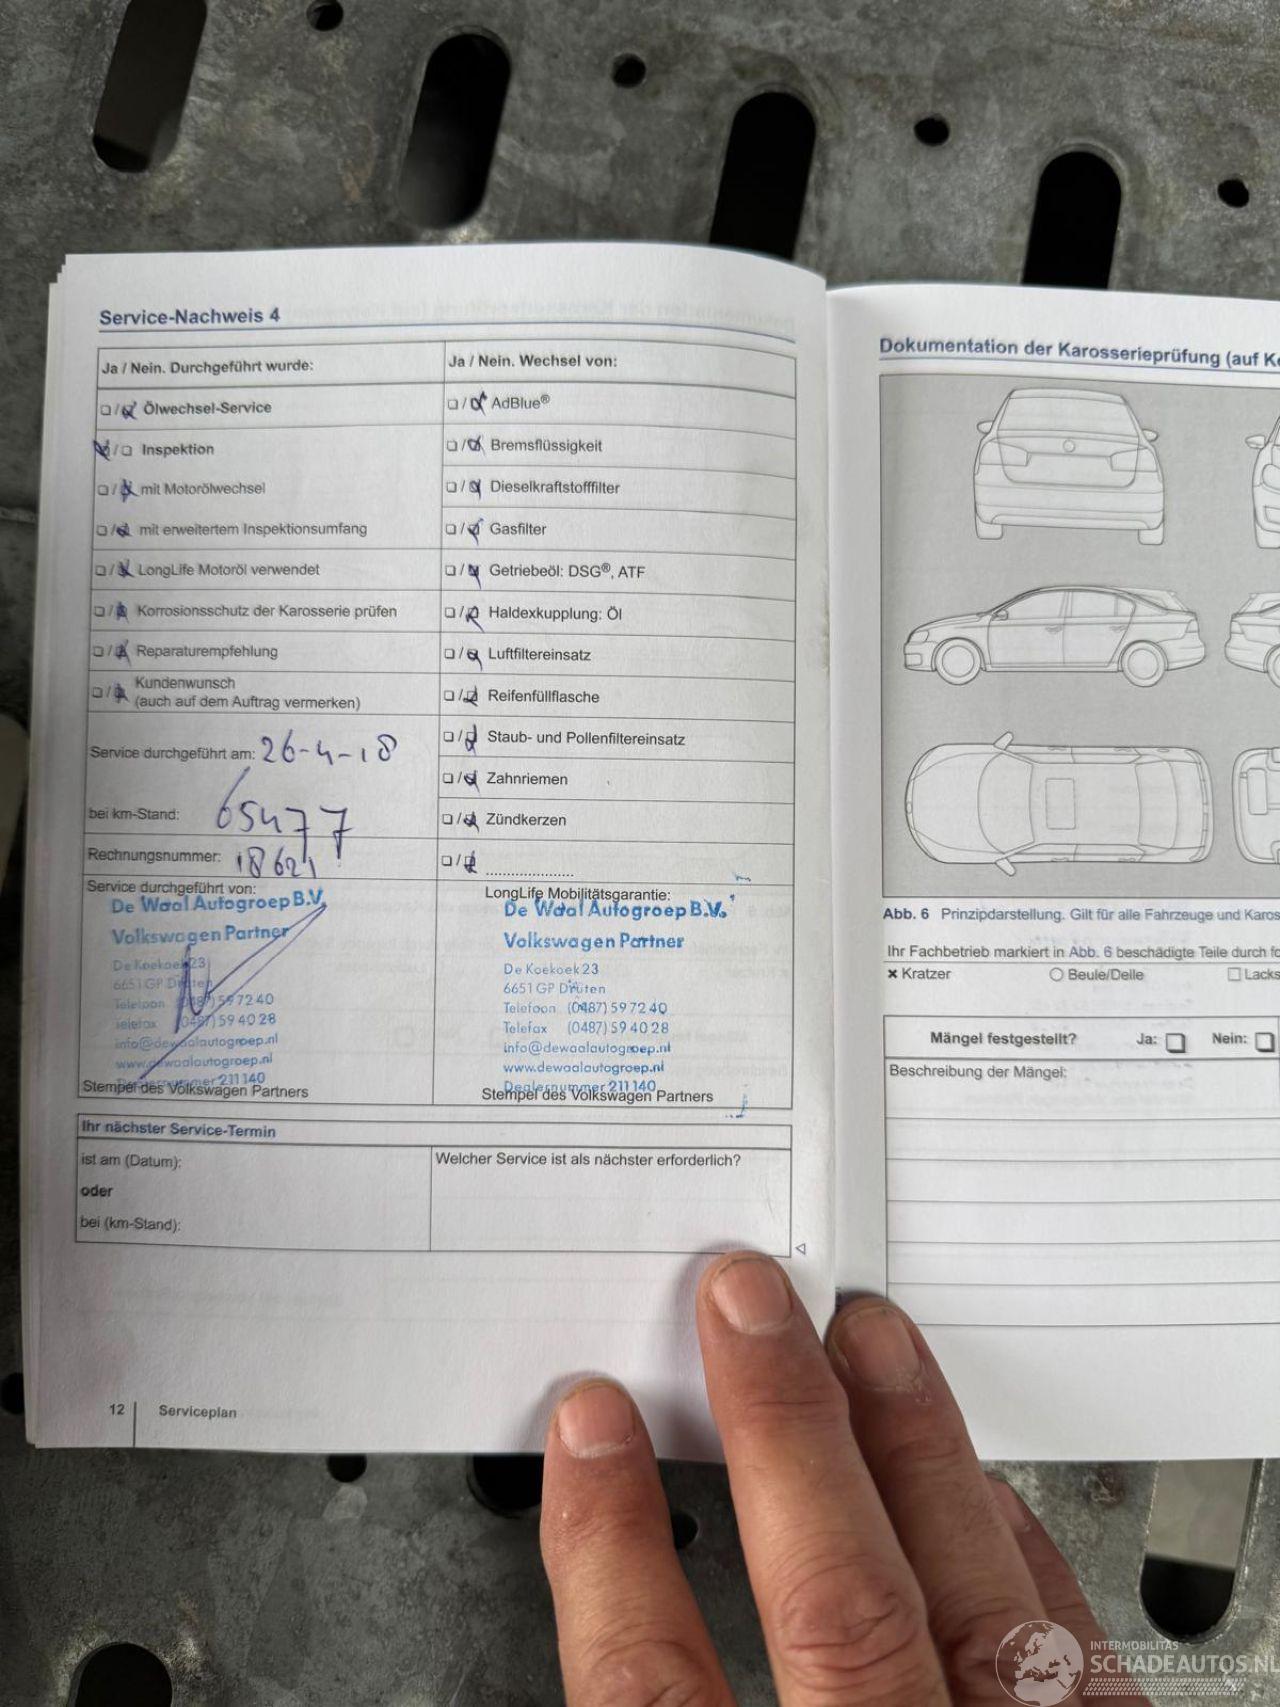 Service-Nachweis 4
Ja / Nein. Durchgeführt wurde:
Ölwechsel-Service
Inspektion
mit Motorölwechsel
mit erweitertem Inspektionsumfang
LongLife Motoröl verwendet
Korrosionsschutz der Karosserie prüfen
Reparaturempfehlung
Kundenwunsch
(auch auf dem Auftrag vermerken)
Service durchgeführt am: 26-4-18
bei km-Stand: 65477
Rechnungsnummer: 18621
Ja / Nein. Wechsel von:
AdBlue®
Bremsflüssigkeit
Dieselkraftstofffilter
Gasfilter
Getriebeöl: DSG®, ATF
Haldexkupplung: Öl
Luftfiltereinsatz
Reifenfüllflasche
Staub- und Pollenfiltereinsatz
Zahnriemen
Zündkerzen
Service durchgeführt von:
De Waal Autogroep B.V.
Volkswagen Partner
De Koekoek 23
6651 GP Druten
Telefoon (0487) 59 72 40
Telefax (0487) 59 40 28
info@dewaalautogroep.nl
www.dewaalautogroep.nl
Dealernummer 211 140
Stempel des Volkswagen Partners
LongLife Mobilitätsgarantie:
De Waal Autogroep B.V.
Volkswagen Partner
De Koekoek 23
6651 GP Druten
Telefoon (0487) 59 72 40
Telefax (0487) 59 40 28
info@dewaalautogroep.nl
www.dewaalautogroep.nl
Dealernummer 211 140
Stempel des Volkswagen Partners
Ihr nächster Service-Termin
ist am (Datum):
oder
bei (km-Stand):
Welcher Service ist als nächster erforderlich?
12 Serviceplan
Dokumentation der Karosserieprüfung (auf
Abb. 6 Prinzipdarstellung. Gilt für alle Fahrzeuge und Karos
Ihr Fachbetrieb markiert in Abb. 6 beschädigte Teile durch
Kratzer
Beule/Delle
Lacks
Mängel festgestellt? Ja: Nein:
Beschreibung der Mängel:
INTERMOBILITAS
SCHADEAUTOS.NL